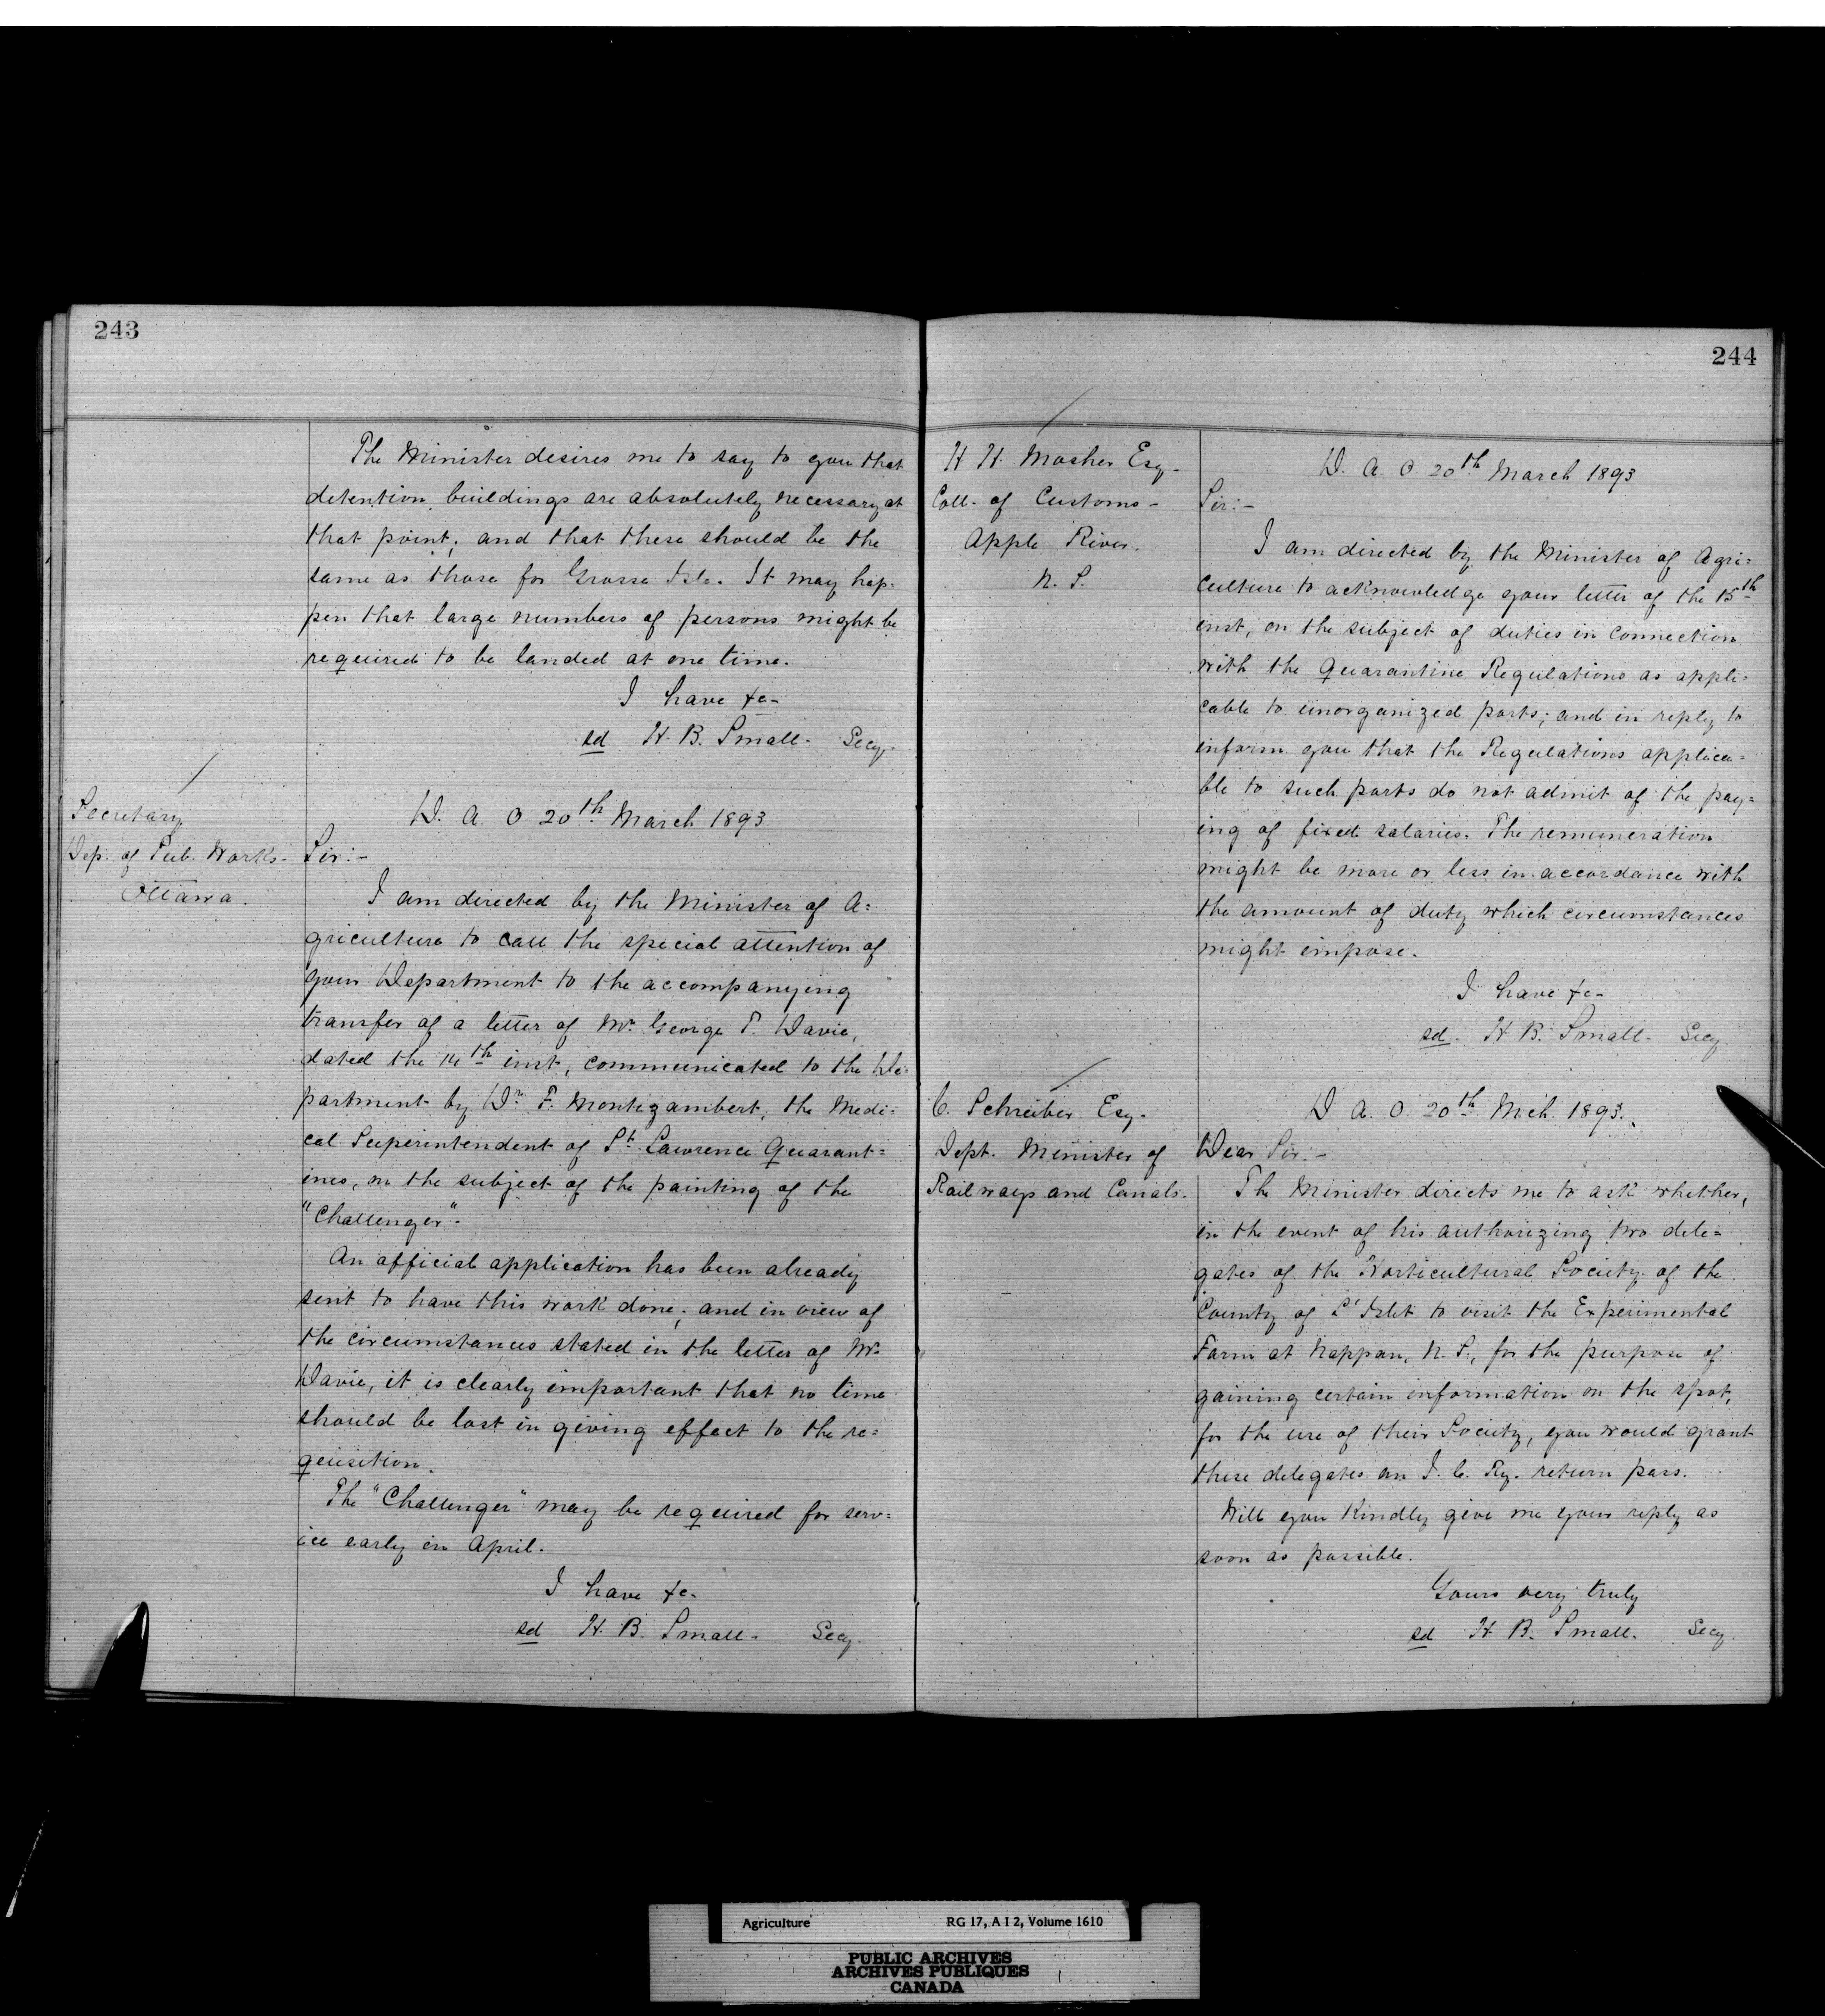 243
The Minister desires me to say to you that
detention buildings are absolutely necessary at
that point; and that these should be the
same as those for Grosse Isle. It may hap-
pen that large numbers of persons might be
required to be landed at one time.
I have &c-
sd H. B. Small- Secy.
Secretary
Dep. of Pub. Works-
Ottawa.
D. A. O 20th March 1893
Sir:-
I am directed by the Minister of A=
griculture to call the special attention of
your Department to the accompanying
transfer of a letter of Mr. George T. Davie,
dated the 14th inst, communicated to the De=
partment by Dr. F. Montizambert, the Medi=
cal Superintendent of St. Lawrence Quarant=
ines, on the subject of the painting of the
"Challenger".
An official application has been already
sent to have this work done; and in view of
the circumstances stated in the letter of Mr.
Davie, it is clearly important that no time
should be lost in giving effect to the re=
quisition.
The "Challenger" may be required for serv=
ice early in April.
I have &c-
sd H. B. Small- Secy.
244
H H. Mosher Esq-
Coll- of Customs-
Apple River.
N. S.
D. A. O. 20th March 1893
Sir:-
I am directed by the Minister of Agri=
culture to acknowledge your letter of the 15th
inst, on the subject of duties in connection
with the Quarantine Regulations as appli=
cable to unorganized ports; and in reply to
inform you that the Regulations applica=
ble to such ports do not admit of the pay=
ing of fixed salaries. The remuneration
might be more or less in accordance with
the amount of duty which circumstances
might impose.
I have &c-
sd- H B. Small- Secy.
C. Schreiber Esq-
Dept. Minister of
Railways and Canals.
D A. O. 20th Mch. 1893.
Dear Sir:-
The Minister directs me to ask whether,
in the event of his authorizing two dele=
gates of the Horticultural Society of the
County of L'Islet to visit the Experimental
Farm at Nappan, N. S., for the purpose of
gaining certain information on the spot,
for the use of their Society, you would grant
these delegates an I. C. Ry. return pass.
Will you Kindly give me your reply as
soon as possible.
Yours very truly
sd H B. Small. Secy.
Agriculture RG 17, A I 2, Volume 1610
PUBLIC ARCHIVES
ARCHIVES PUBLIQUES
CANADA